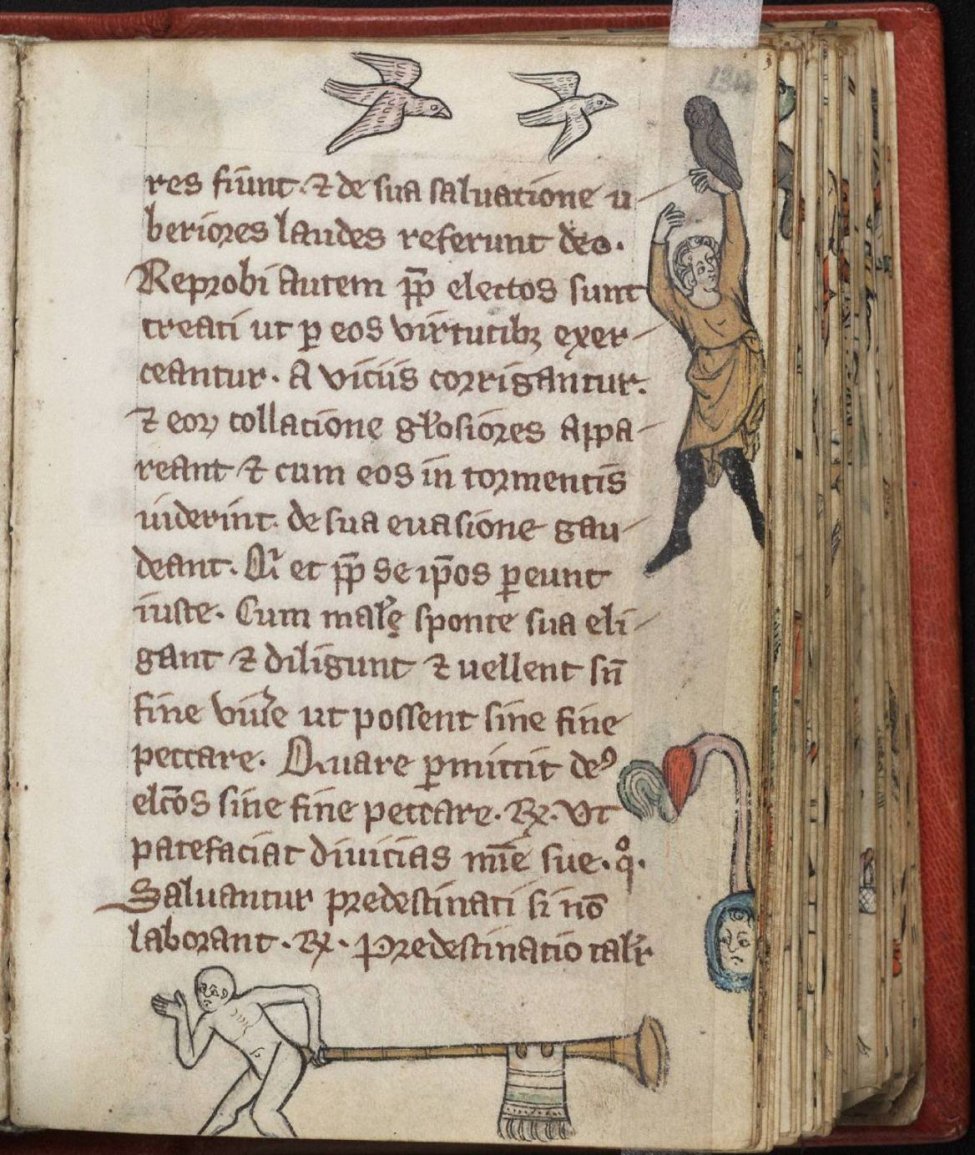 134
res fiūnt. ⁊ de sua saluatione u
beriores laudes referunt deo.
Reprobi autem ꝓp̄ electos sunt
creati ut ꝑ eos virtutibꝫ exer
ceantur. A viciis corrigantur.
⁊ eoꝝ collatione gl̄osiores appa
reant ⁊ cum eos in tormentis
uiderint. de sua euasione gau
deant. Qͥ et ꝓp̄ se ip̄os ꝑeunt
iuste. Cum mala sponte sua eli
gant ⁊ diligunt ⁊ uellent sn̄
fine viu̾e ut possent sine fine
peccare. Quare ꝑmittit deꝰ
elc̄os siue fine peccare. ℞. Vt
patefaciat diuicias mīe sue. qͦ.
Saluantur predestinati si nō
laborant. ℞. Predestinatio talr̄